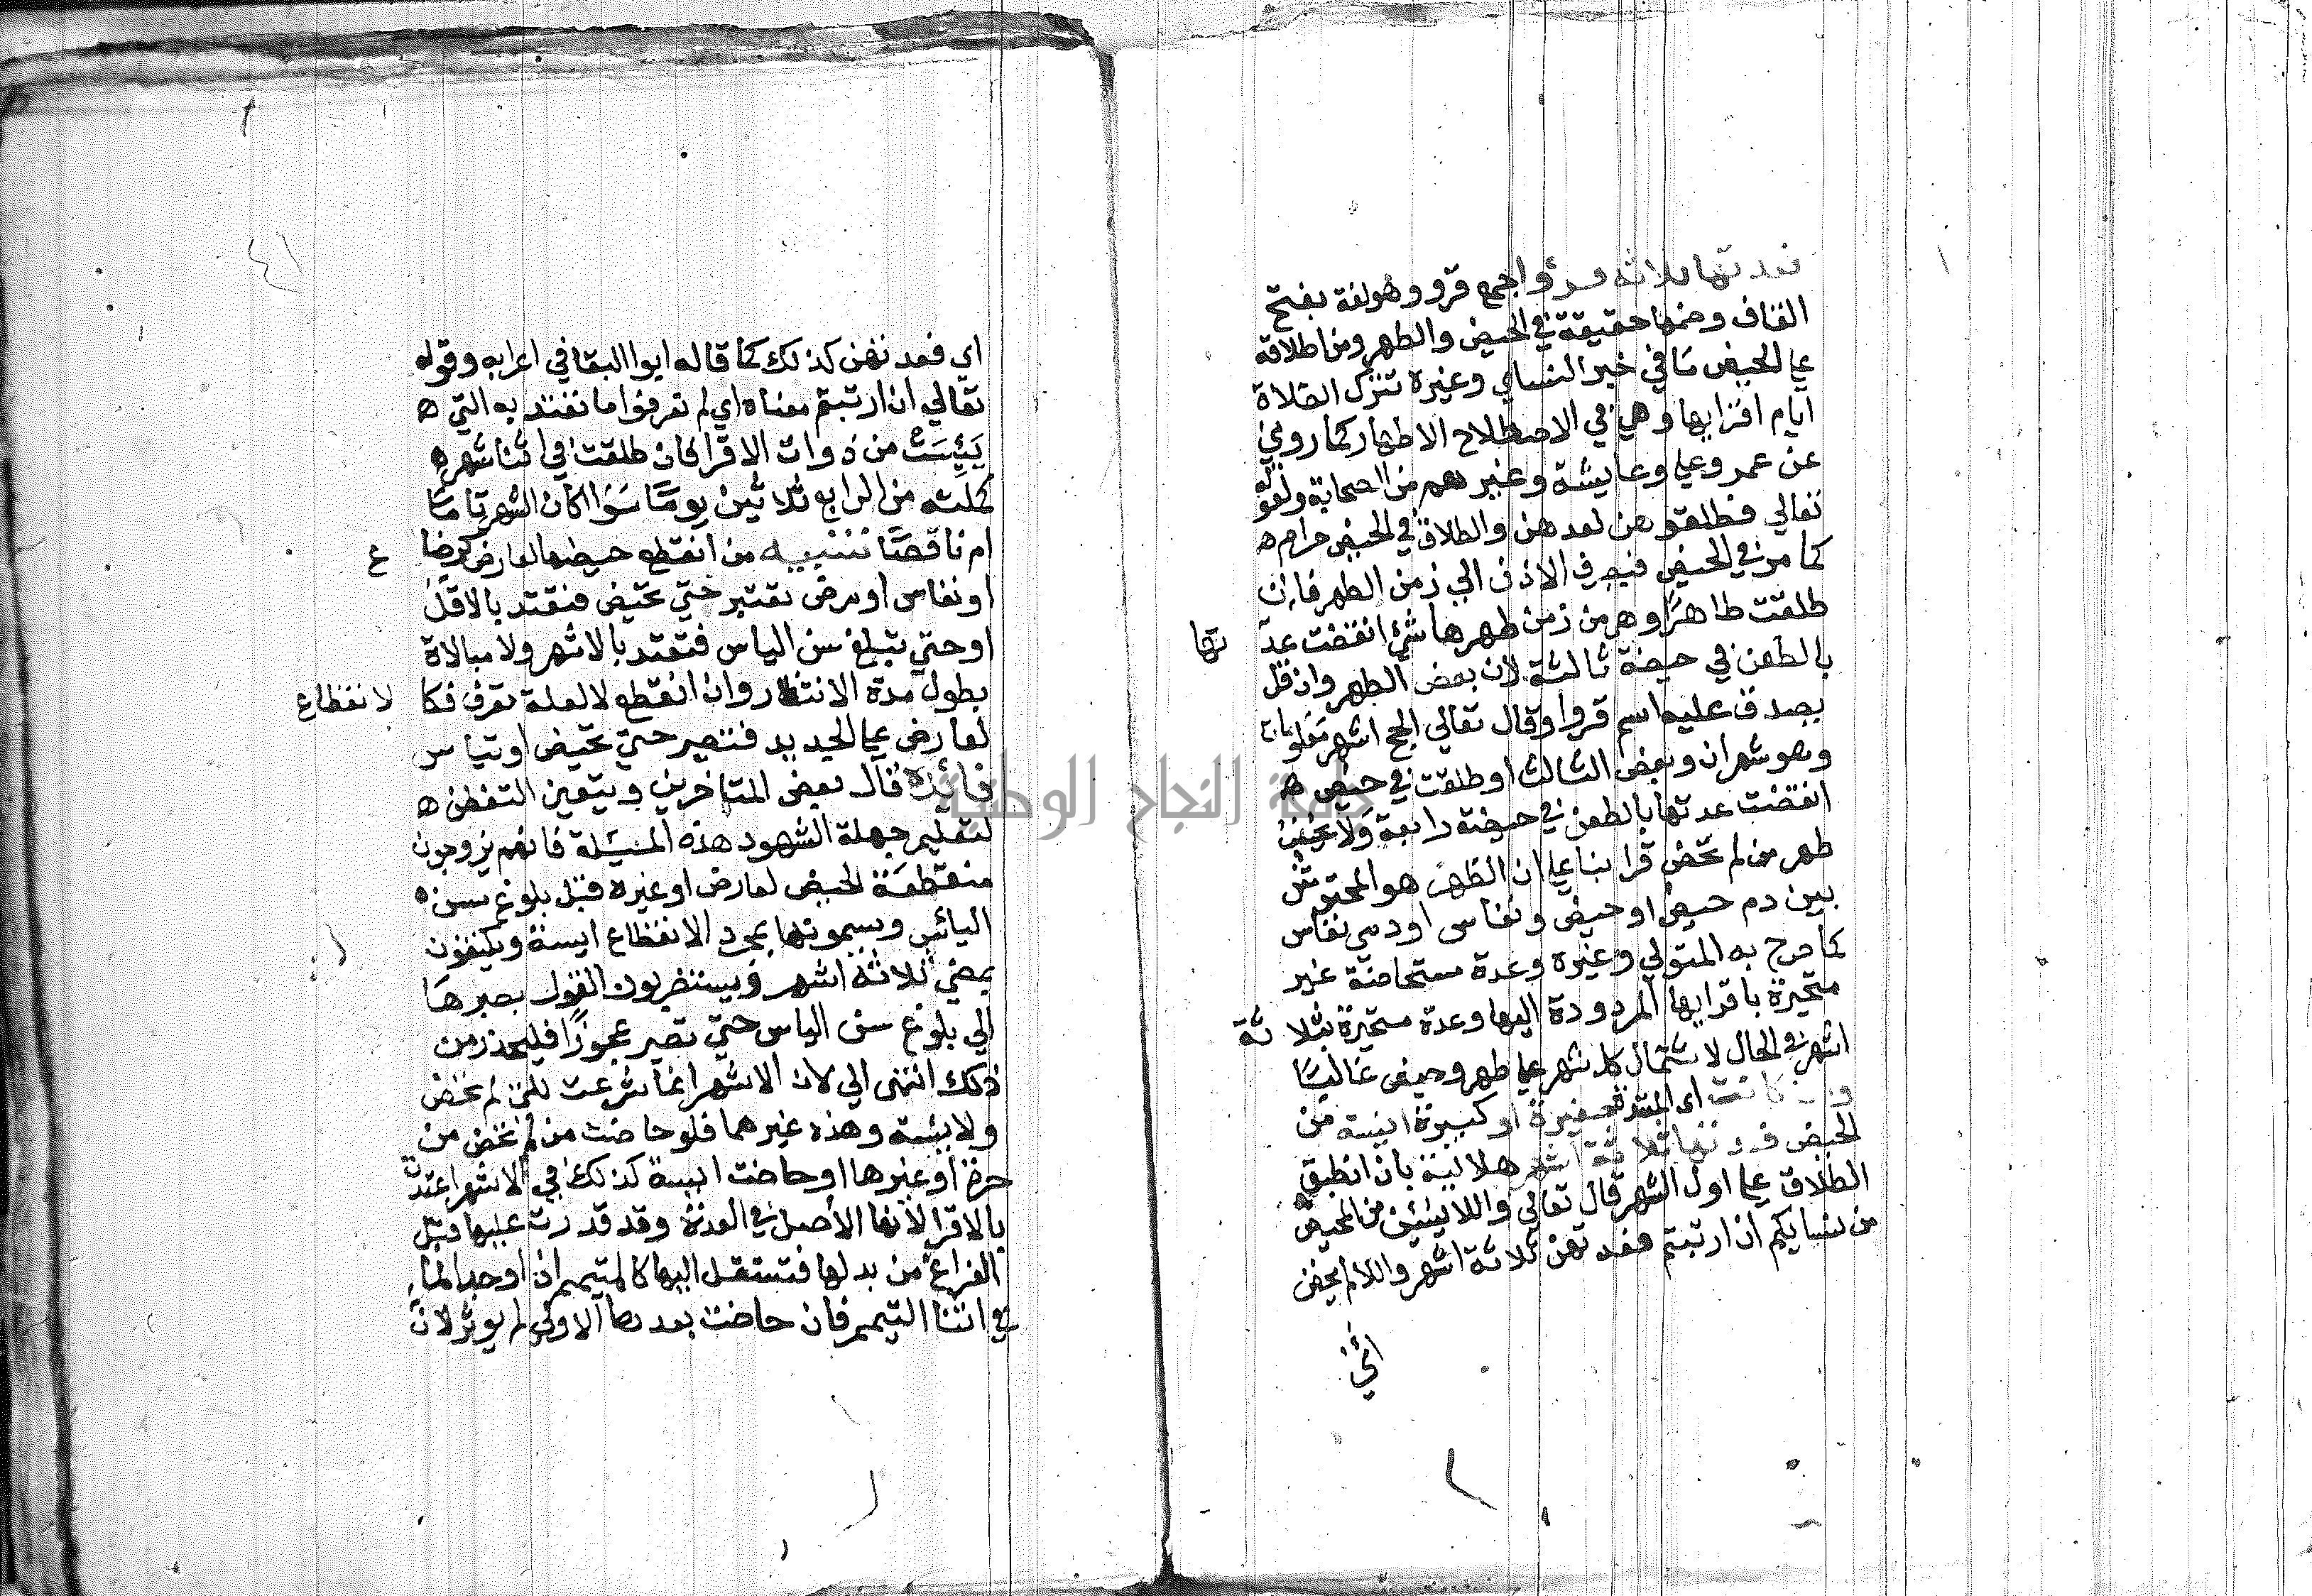 فعدتها ثلاثة قروا جمع قرو وهو لغة بفتح
القاف وضمها حقيقة في الحيض والطهر ومن اطلاقه
علي الحيض ما في خبر النساي وغيره تترك الصلاة
ايام اقرايها وهي في الاصطلاح الاطهار كما روي
عن عمر وعلي وعايشة وغيرهم من الصحابة ولقوله
تعالي فطلقوهن لعدهن والطلاق في الحيض حرام ه
كما مر في الحيض فيصرف الاذن الي زمن الطهر فان
طلقت طاهرا وهر من زمن طهرها شئ انقضت عدتها
بالطعن في حيضة ثالثة لان بعض الطهر وان قل
يصدق عليه اسم قروا وقال تعالي الحج اشهر معلومات
وهو شهران وبعض الثالث او طلقت في حيض ه
انقضت عدتها بالطعن في حيضة رابعة ولا يحسب
طهر من لم تحض قرا بنا علي ان الطهر هو المحتوش
بين دم حيض او حيض ونفاس او دمي نفاس
كما صرح به المتولي وغيره وعدة مستحاضة غير
متحيرة باقرايها المردودة اليها وعدة متحيرة بثلاثة
اشهر في الحال لاشتمال كل شهر علي طهر وحيض غالبا
وان كانت اي المعتدة صغيرة او كبيرة ايسة من
الحيض فعدتها ثلاثة اشهر هلالية بان انطبق
الطلاق علي اول الشهر قال تعالي واللا يئسن من المحيض
من نسايكم ان ارتبتم فعدتهن ثلاثة اشهر واللا لم يحضن
اي فعدتهن كذلك كما قاله ابوا البقا في اعرابه وقوله
تعالي ان ارتبتم معناه اي لم تعرفوا ما تعتد به التي ه
يَئِسَتْ من ذوات الاقرا فان طلقت في اثنا شهر ه
كملته من الرابع ثلاثين يومًا سَوَا كان الشهر تاما
ام ناقصًا تنبيه من انقطع حيضها لعارض كرضاع
او نفاس او مرض تعتبر حتي تحيض فتعتد بالاقل
او حتي تبلغ سن الياس فتعتد بالاشهر ولا مبالاة
بطول مدة الانتظار وان انقطع لا لعلة تعرف فكالانقطاع
لعارض علي الجديد فتصبر حتي تحيض او تياس
فائدة قال بعض المتاخرين ويتعين التفطن ه
لتعليم جهلة الشهود هذه المسيلة فانهم يزوجون
منقطعة الحيض لعارض او غيره قبل بلوغ سن ه
اليائس ويسمونها بمجرد الانقطاع ايسة ويكتفون
بمضي ثلاثة اشهر ويستغربون القول بصبرها
الي بلوغ سن الياس حتي تصير عجوزًا فليحذر من
ذلك انتهي الي لان الاشهر انما شرعت للتي لم تحض
ولا يئسة وهذه غيرهما فلو حاضت من لم تحض من
حرة او غيرها او حاضت ايسة كذلك في الاشهر اعتدت
بالاقرا لانها الاصل في العدة وقد قدرت عليها قبل
الفراغ من بدلها فتنتقل اليها كالمتيمم ان اوجد الما
في اثنا التيمم فان حاضت بعدها الاولي لم يوثر لان
جامعة النجاح الوطنية